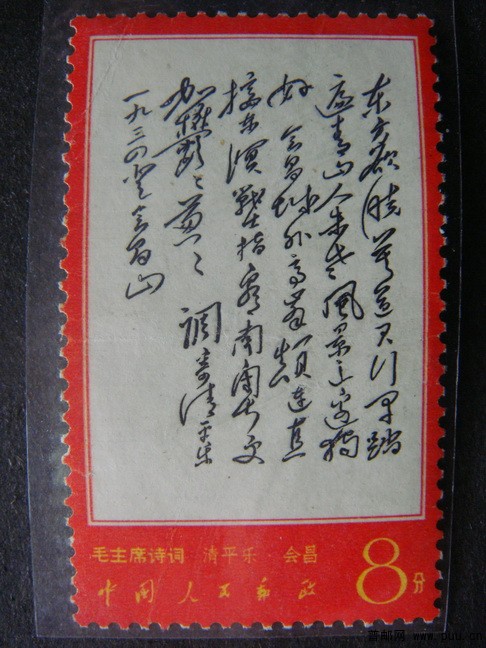 东方欲晓莫道君行早踏
遍青山人未老風景这边独
好会昌城外高峯颠连直
接东溟戰士指看南粤更
加鬱〻葱〻 調寄清平乐
一九三四登会昌山
毛主席诗词 清平乐 会昌
中国人民邮政
8分
普邮网 www.puu.cn